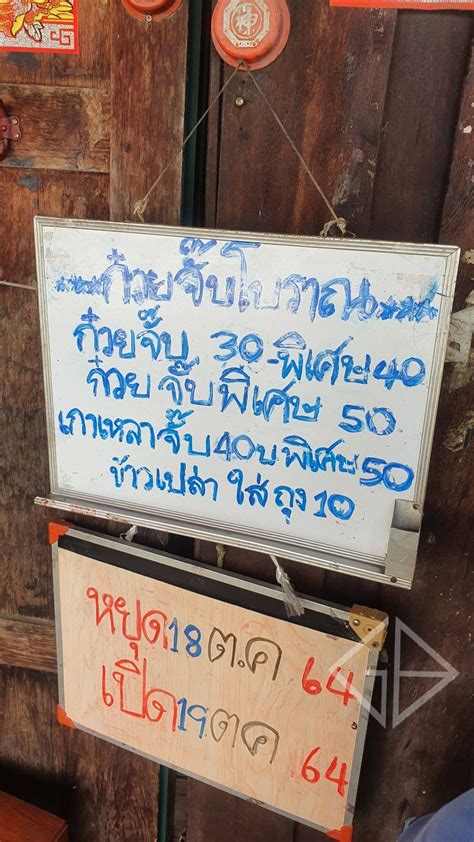 神
***ก๋วยจั๊บโบราณ***
ก๋วยจั๊บ 30-พิเศษ 40
ก๋วยจั๊บพิเศษ 50
เกาเหลาจั๊บ 40 บ พิเศษ 50
ข้าวเปล่า ใส่ถุง 10
หยุด 18 ต.ค 64
เปิด 19 ตค 64